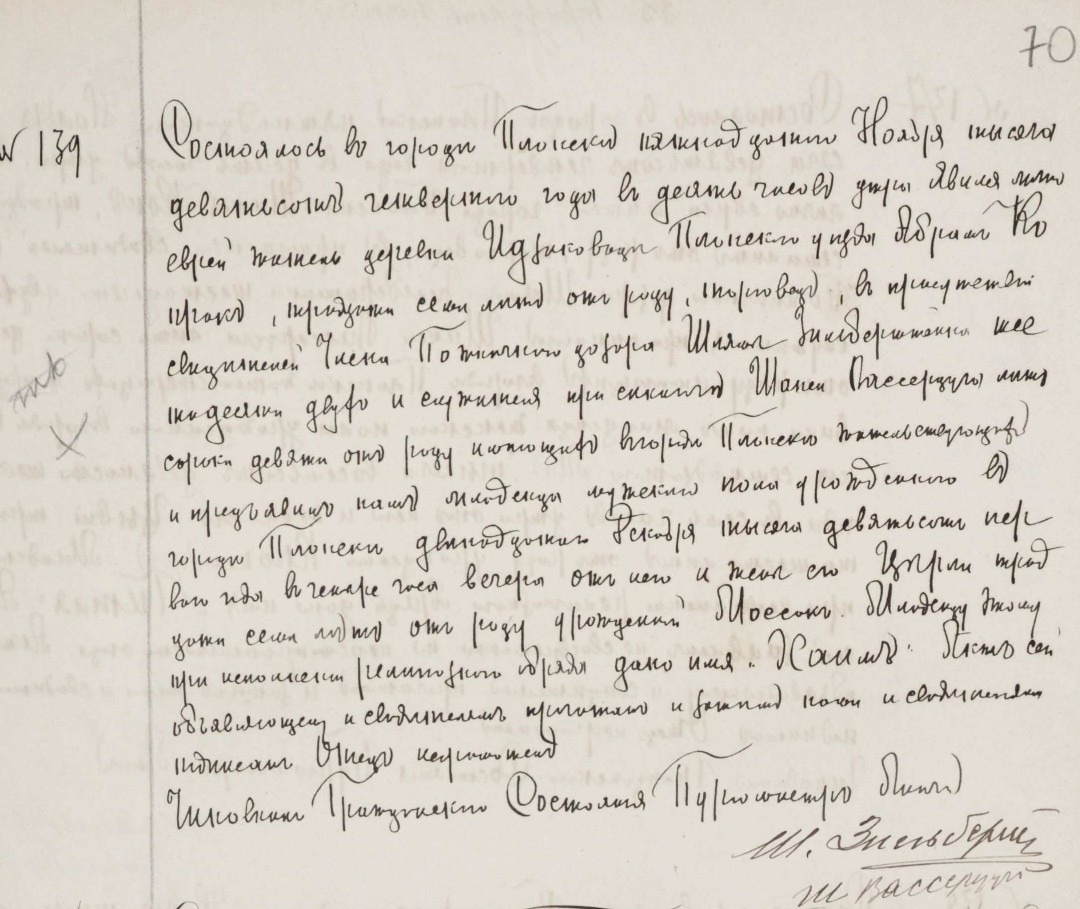 70
№ 139
Состоялось въ городѣ Плонскѣ пятнадцатаго Ноября тысяча
девятьсотъ четвертаго года въ десять часовъ утра явился лично
еврей житель деревни Плонскаго уѣзда Абрамъ Ко
тридцати семи лѣтъ отъ роду, торговецъ, въ присутствіи
свидѣтелей Члена Божничнаго дозора Шмуля Зильберштейна шес
тидесяти двухъ и служителя при синагогѣ Шаи Вассерцуга
сорока девяти отъ роду въ городѣ Плонскѣ жительствующихъ
и предъявилъ намъ младенца мужескаго пола урожденнаго въ
городѣ Плонскѣ двѣнадцатаго Декабря тысяча девятьсотъ пер
ваго года въ четыре часа вечера отъ него и жены его Цырли трид
цати семи лѣтъ отъ роду урожденной Младенцу этому
при исполненіи религіознаго обряда дано имя „Хаимъ“. Актъ сей
объявляющему и свидѣтелямъ прочитанъ и затѣмъ нами и свидѣтелями
подписанъ Отецъ неграмотенъ
Чиновникъ Гражданскаго Состоянія Бургомистръ
Ш. Зильбершт
Ш Вассерцугъ